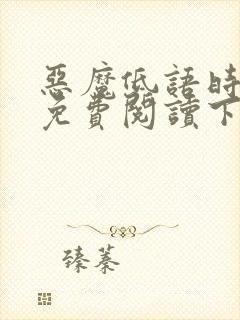 惡魔低語時
免費閱讀下
臻蓁